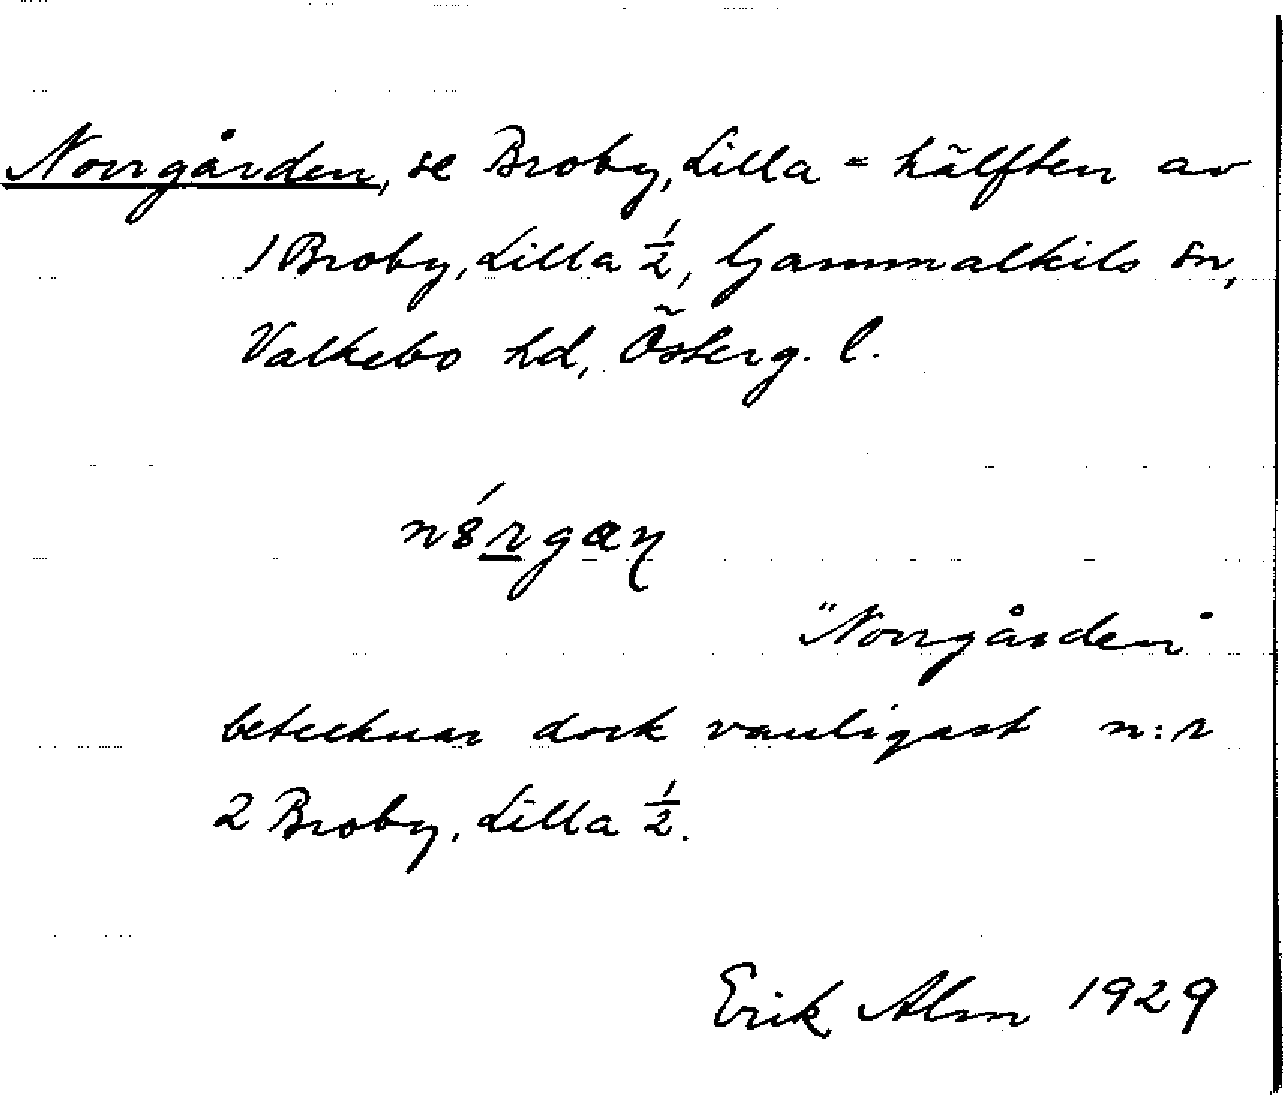 Norrgården, se Broby, Lilla = hälften av
1 Broby, Lilla 1/2, Gammalkils sn,
Valkebo hd, Österg. l.
"Norrgården"
betecknar dock vanligast n:r
2 Broby, Lilla 1/2.
Erik Alm 1929